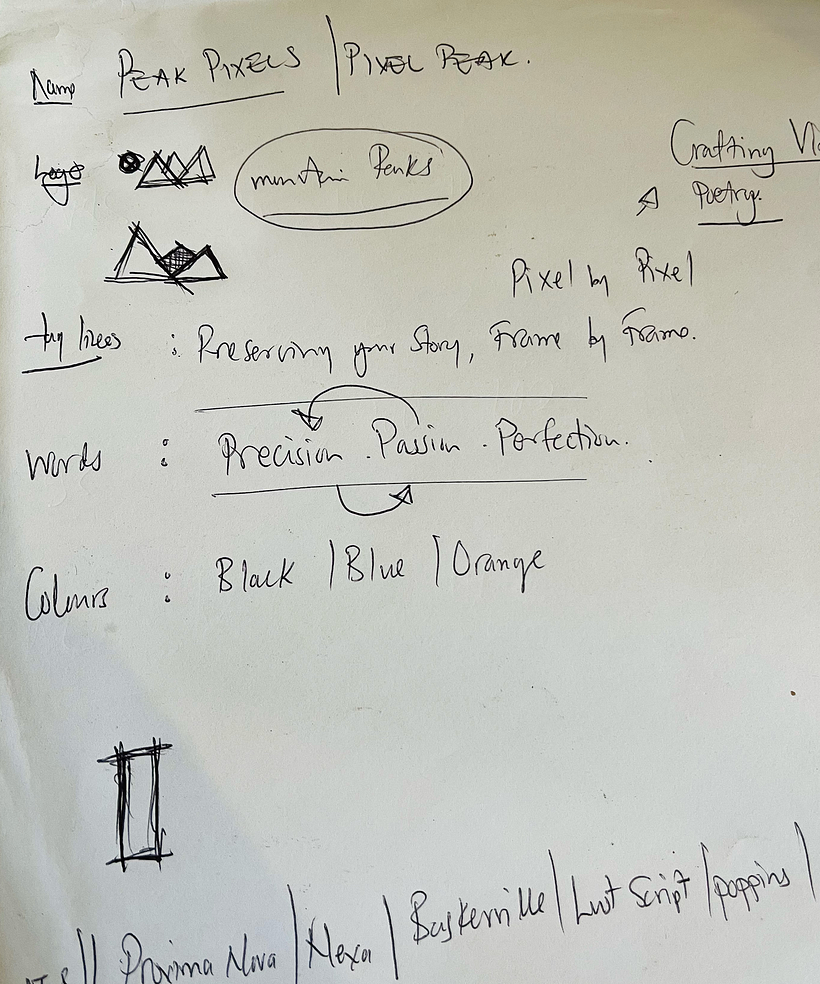 Name PEAK PIXELS | PIXEL PEAK.
Crafting
Logo mountain Peaks
Poetry.
Pixel by Pixel
tag lines : Preserving your Story, Frame by Frame.
Words : Precision . Passion . Perfection.
Colours : Black | Blue | Orange
Proxima Nova | Nexa | Baskerville | Script | Poppins |